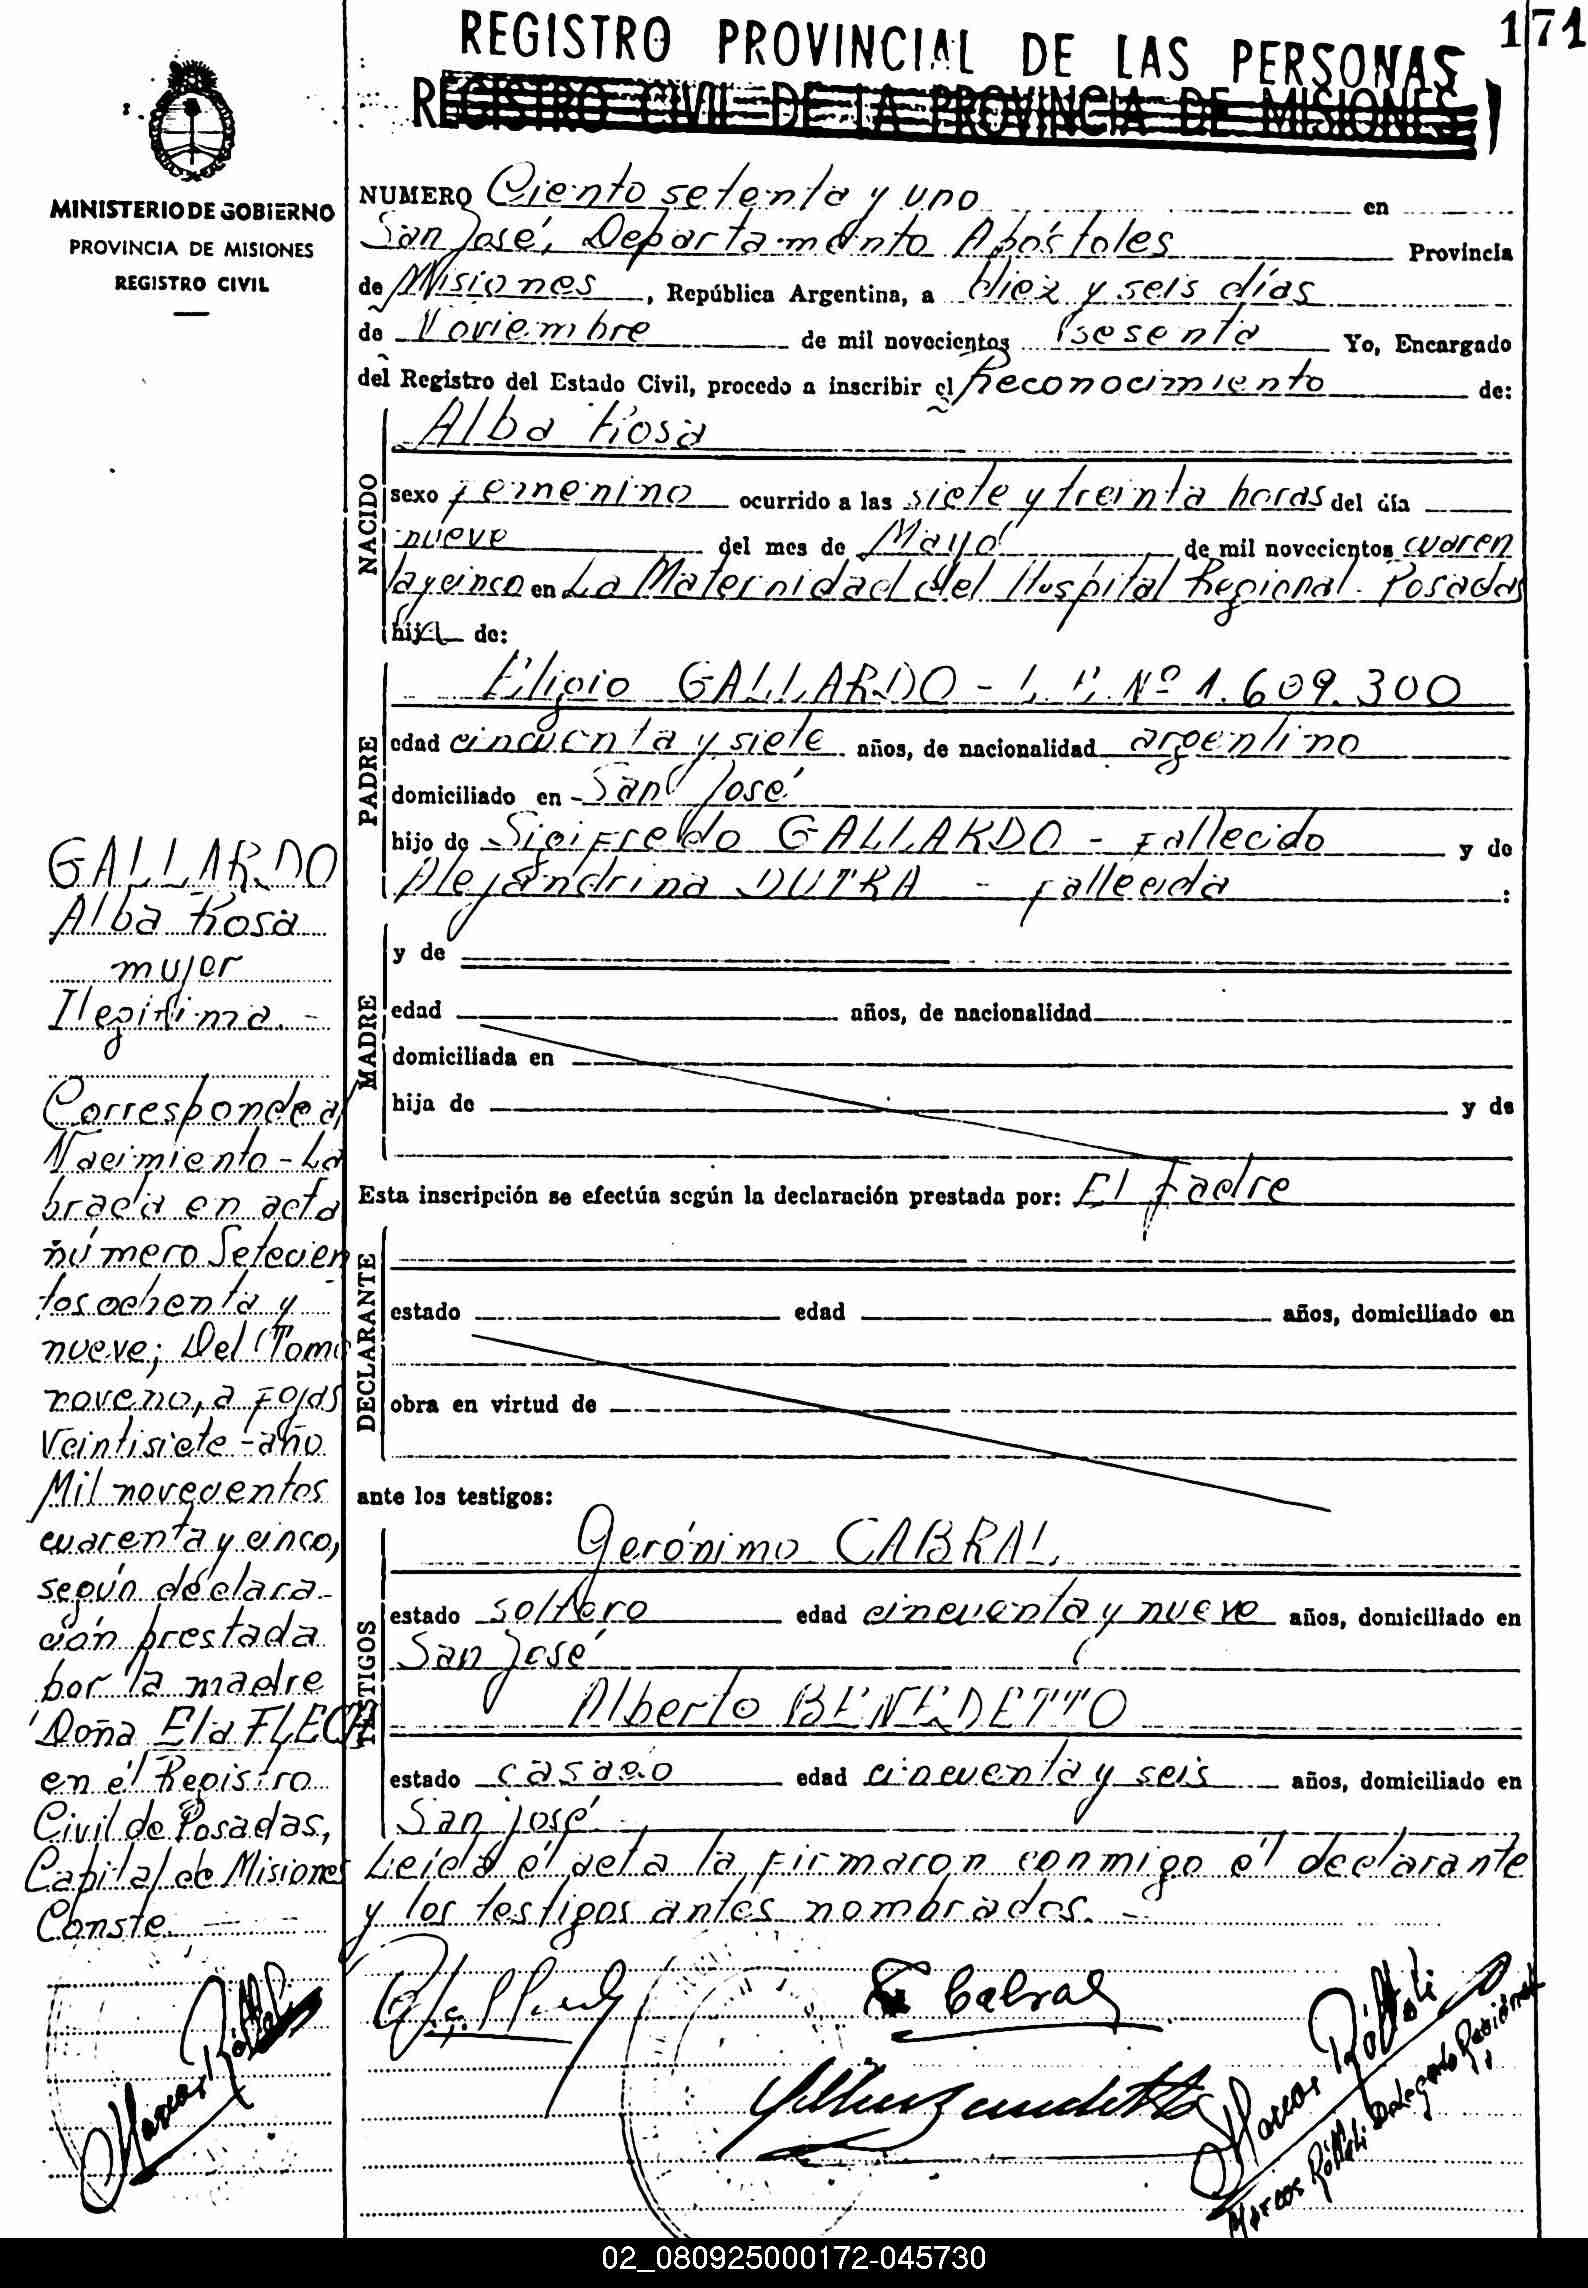 171
REGISTRO PROVINCIAL DE LAS PERSONAS
REGISTRO CIVIL DE LA PROVINCIA DE MISIONES
MINISTERIO DE GOBIERNO
PROVINCIA DE MISIONES
REGISTRO CIVIL
NUMERO Ciento setenta y uno en
San José, Departamento Apóstoles Provincia
de Misiones, República Argentina, a diez y seis días
de Noviembre de mil novecientos sesenta Yo, Encargado
del Registro del Estado Civil, procedo a inscribir el Reconocimiento de:
NACIDO
Alba Rosa
sexo femenino ocurrido a las siete y treinta horas del día
nueve del mes de Mayo de mil novecientos cuaren
taycinco en La Maternidad del Hospital Regional Posadas
hija de:
PADRE
Eligio GALLARDO - L.E. Nº 1.609.300
edad cincuenta y siete años, de nacionalidad argentino
domiciliado en San José
hijo de Sigifredo GALLARDO - fallecido y de
Alejandrina DUTRA - fallecida :
MADRE
y de
edad años, de nacionalidad
domiciliada en
hija de y de
Esta inscripción se efectúa según la declaración prestada por: El padre
DECLARANTE
estado edad años, domiciliado en
obra en virtud de
ante los testigos:
TESTIGOS
Gerónimo CABRAL
estado soltero edad cincuenta y nueve años, domiciliado en
San José
Alberto BENEDETTO
estado casado edad cincuenta y seis años, domiciliado en
San José
Leída el acta la firmaron conmigo el declarante
y los testigos antes nombrados. -
GALLARDO
Alba Rosa
mujer
Ilegítima. -
Corresponde a
Nacimiento - La
brada en acta
número Setecien
tos ochenta y
nueve; Del Tomo
noveno, a fojas
Veintisiete - año
Mil novecientos
cuarenta y cinco,
según declara-
ción prestada
por la madre
Doña Ela FLECH
en el Registro
Civil de Posadas,
Capital de Misiones
Conste.
Cabral
Marcos Róttoli
Marcos Róttoli
Marcos Róttoli Delegado Regional
02_080925000172-045730